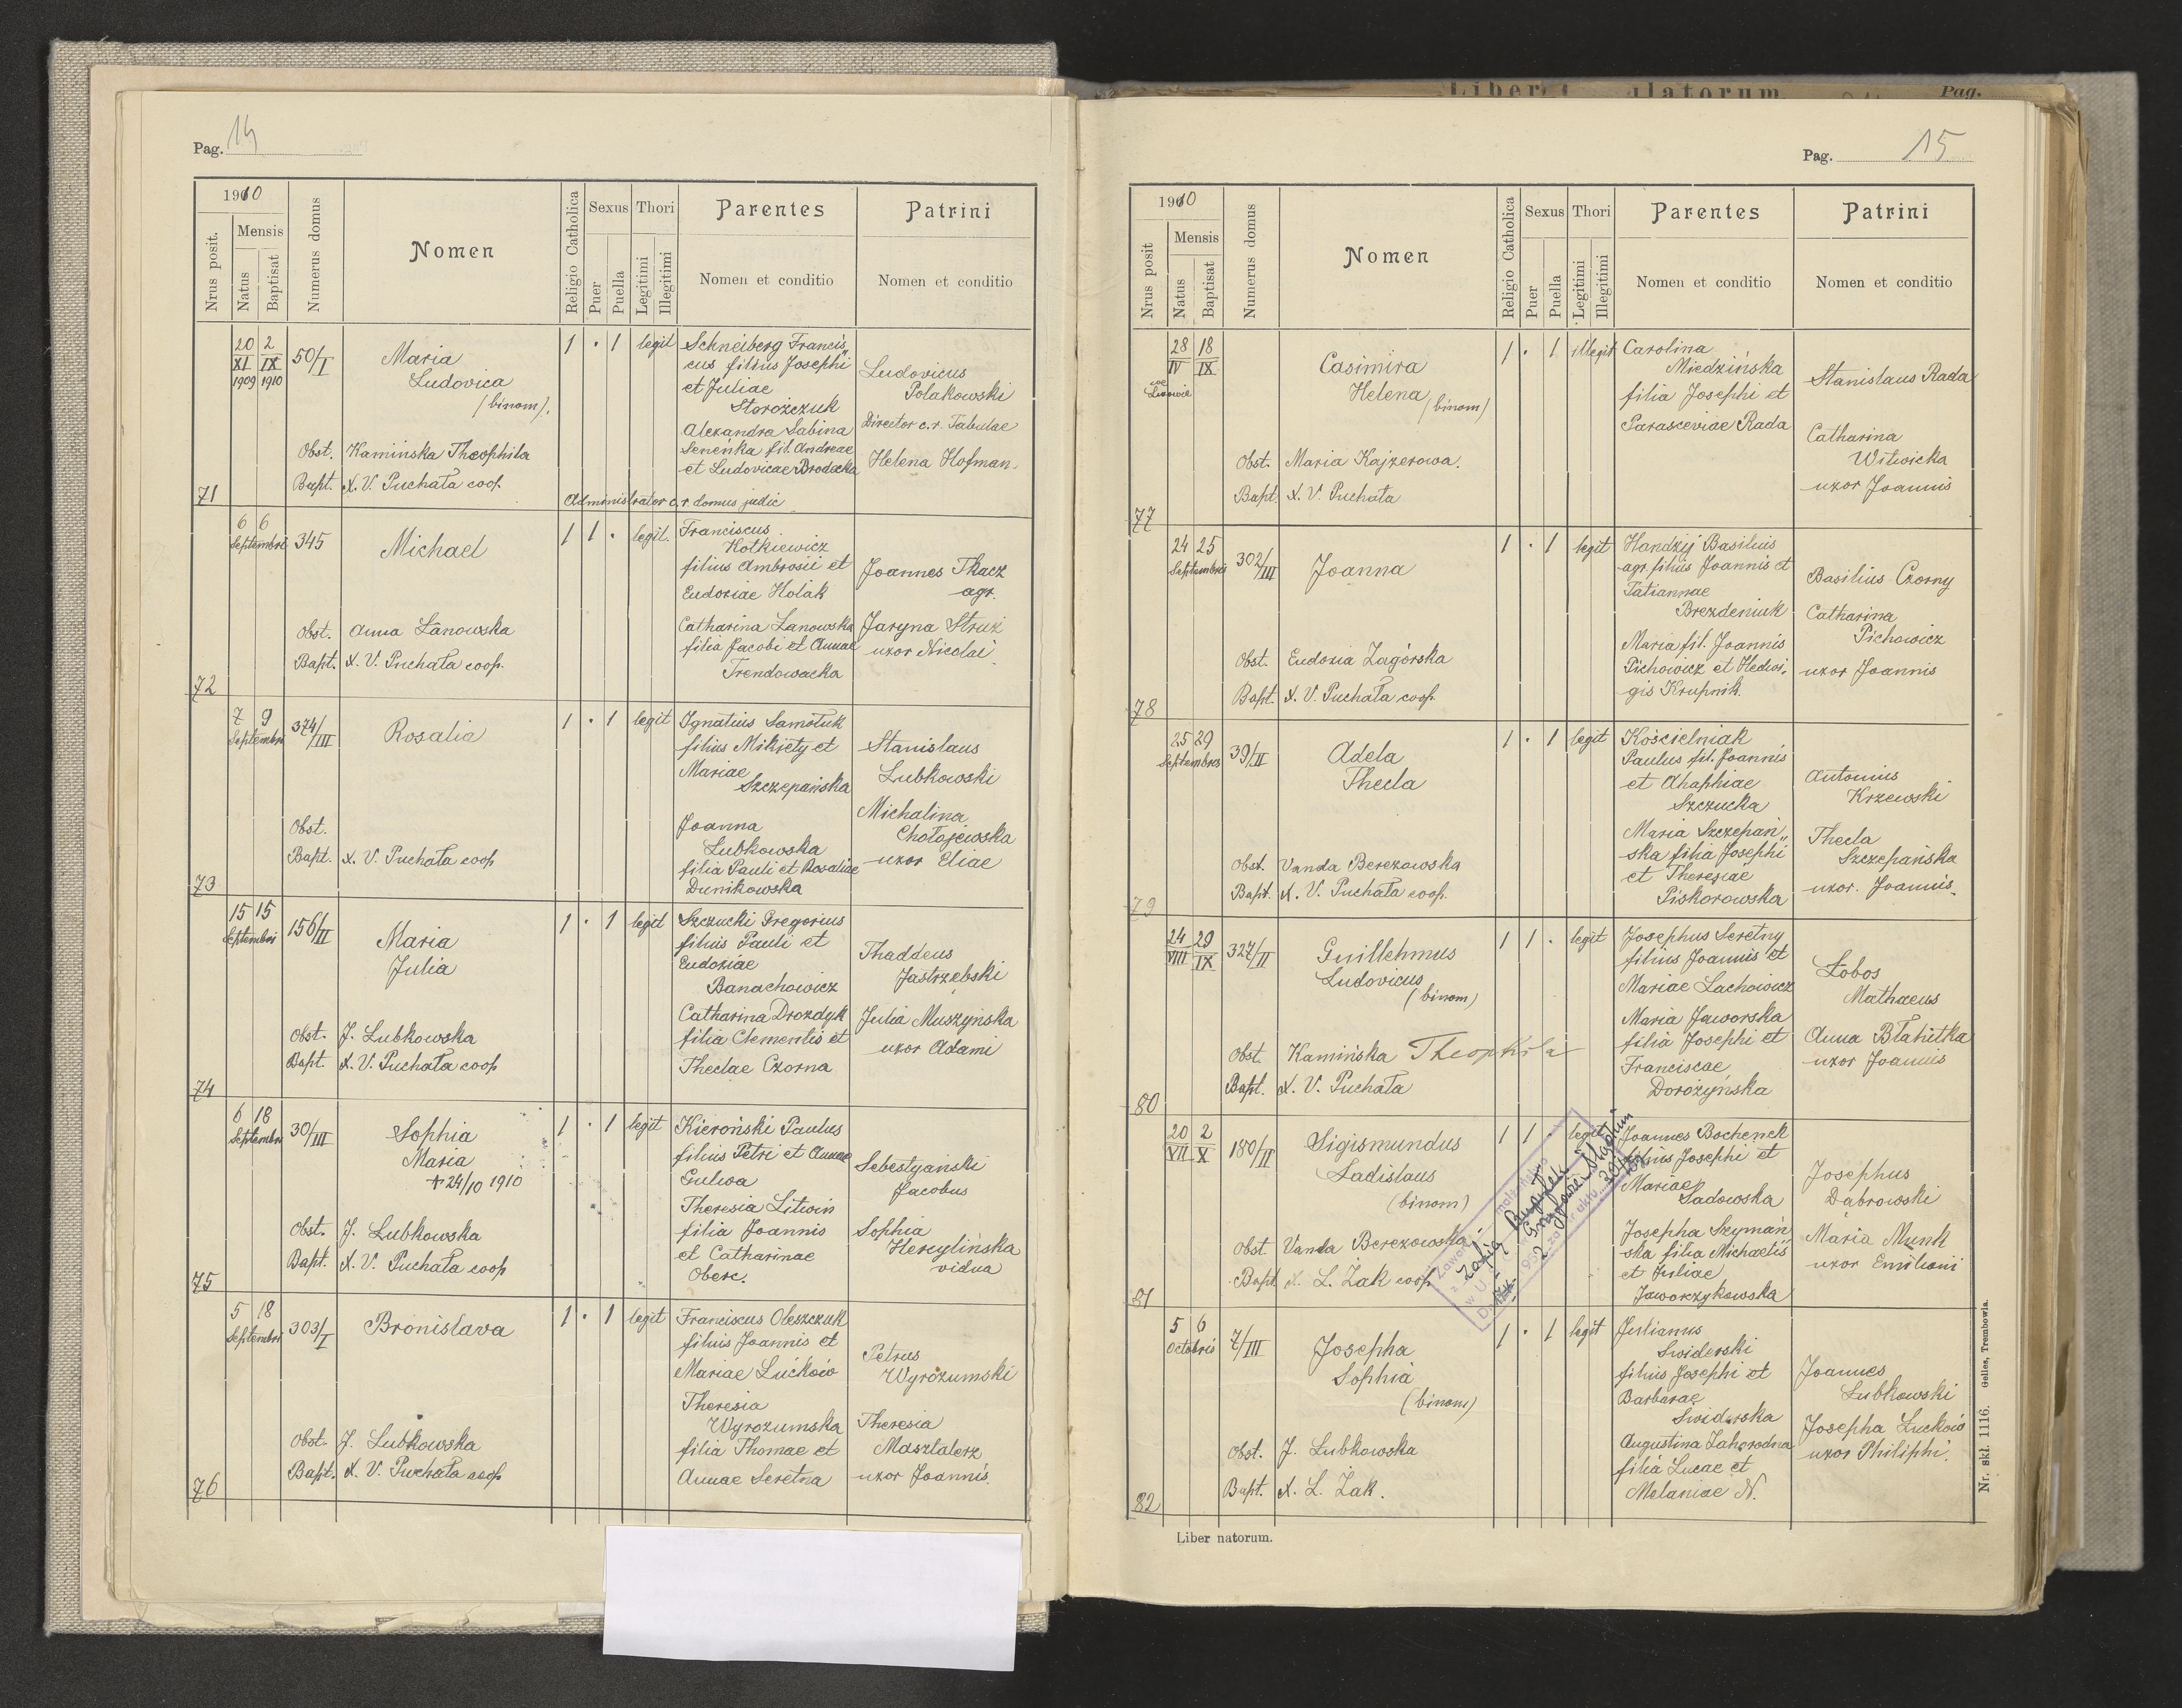 Pag. 14
1910
Nrus posit.
Mensis
Natus
Baptisat
Numerus domus
Nomen
Religio Catholica
Sexus
Puer
Puella
Thori
Legitimi
Illegitimi
Parentes
Nomen et conditio
Patrini
Nomen et conditio
71
20 2
XI IX
1909 1910
50/I
Maria
Ludovica
(binom).
Obst. Kamińska Theophila
Bapt. X. V. Puchała coop.
1 · 1 legit
Schneiberg Francis,,
cus filius Josephi
et Juliae
Storożczuk
Alexandra Sabina
Seneńka fil. Andreae
et Ludovicae Brodacka
Administrator c. r. domus judic
Ludovicus
Polakowski
Director c. r. Tabulae
Helena Hofman
72
6 6
Septembris
345
Michael
Obst. Anna Łanowska
Bapt. X. V. Puchała coop.
1 1 · legit.
Franciscus
Kotkiewicz
filius Ambrosii et
Eudoxiae Holak
Catharina Łanowska
filia Jacobi et Annae
Trendowacka
Joannes Tkacz
agr.
Jaryna Struż
uxor Nicolai
73
7 9
Septembris
374/III
Rosalia
Obst.
Bapt. X. V. Puchała coop
1 · 1 legit
Ignatius Samołuk
filius Mikiety et
Mariae
Szczepańska
Joanna
Lubkowska
filia Pauli et Rosaliae
Dunikowska
Stanislaus
Lubkowski
Michalina
Chołojewska
uxor Eliae
74
15 15
Septembris
156/II
Maria
Julia
Obst. J. Lubkowska
Bapt. X. V. Puchała coop
1 · 1 legit
Szczucki Gregorius
filius Pauli et
Eudoxiae
Banachowicz
Catharina Drozdyk
filia Clementis et
Theclae Czorna
Thaddeus
Jastrzebski
Julia Muszyńska
uxor Adami
75
6 18
Septembr
30/III
Sophia
Maria
+ 24/10 1910
Obst. J. Lubkowska
Bapt. X. V. Puchała coop
1 · 1 legit
Kieroński Paulus
filius Petri et Annae
Gulwa
Theresia Litwin
filia Joannis
et Catharinae
Oberc.
Sebestyański
Jacobus
Sophia
Hercylińska
vidua
76
5 18
Septembris
303/I
Bronislava
Obst. J. Lubkowska
Bapt. X. V. Puchała coop
1 · 1 legit
Franciscus Oleszczuk
filius Joannis et
Mariae Lućków
Theresia
Wyrozumska
filia Thomae et
Annae Seretna
Petrus
Wyrozumski
Theresia
Masztalerz
uxor Joannis.
Liber natorum.
Pag.
Pag. 15
1910
Nrus posit
Mensis
Natus
Baptisat
Numerus domus
Nomen
Religio Catholica
Sexus
Puer
Puella
Thori
Legitimi
Illegitimi
Parentes
Nomen et conditio
Patrini
Nomen et conditio
77
28 18
IV IX
Casimira
Helena
(binom)
Obst. Maria Kajzerowa.
Bapt. X. V. Puchała
1 · 1 illegit
Carolina
Miedzińska
filia Josephi et
Parasceviae Rada
Stanislaus Rada
Catharina
Witwicka
uxor Joannis
78
24 25
Septembris
302/III
Joanna
Obst. Eudoxia Zagórska
Bapt. X. V. Puchała coop.
1 · 1 legit
Handzij Basilius
agr. filius Joannis et
Tatiannae
Brezdeniuk
Maria fil. Joannis
Pichowicz et Hedwi,
gis Krupnik.
Basilius Czorny
Catharina
Pichowicz
uxor Joannis
79
25 29
Septembris
39/II
Adela
Thecla
Obst. Vanda Berezowska
Bapt. X. V. Puchała coop.
1 · 1 legit
Kościelniak
Paulus fil. Joannis
et Ahaphiae
Szczucka
Maria Szczepań,,
ska filia Josephi
et Theresiae
Piskorowska
Antonius
Krzewski
Thecla
Szczepańska
uxor. Joannis.
80
24 29
VIII IX
327/II
Guillelmus
Ludovicus
(binom)
Obst. Kamińska Theophila
Bapt. X. V. Puchała
1 1 · legit
Josephus Seretny
filius Joannis et
Mariae Lachowicz
Maria Jaworska
filia Josephi et
Franciscae
Dorożyńska
Łobos
Mathaeus
Anna Błahitka
uxor Joannis
81
20 2
VII X
180/II
Sigismundus
Ladislaus
(binom)
Obst. Vanda Berezowska
Bapt. X. L. Żak coop
1 1 · legit
Joannes Bochenek
filius Josephi et
Mariae
Sadowska
Josepha Szymań
ska filia Michaelis
et Juliae
Jaworzykowska
Josephus
Dąbrowski
Maria Munk
uxor Emiliani
82
5 6
Octobris
7/III
Josepha
Sophia
(binom)
Obst. J. Lubkowska
Bapt. X. L. Żak.
1 · 1 legit
Julianus
Swiderski
filius Josephi et
Barbarae
Swiderska
Augustina Zahorodna
filia Lucae et
Melaniae N.
Joannes
Lubkowski
Josepha Luckow
uxor Philiphi.
Liber natorum.
Nr. skł. 1116. Gelles, Trembowla.